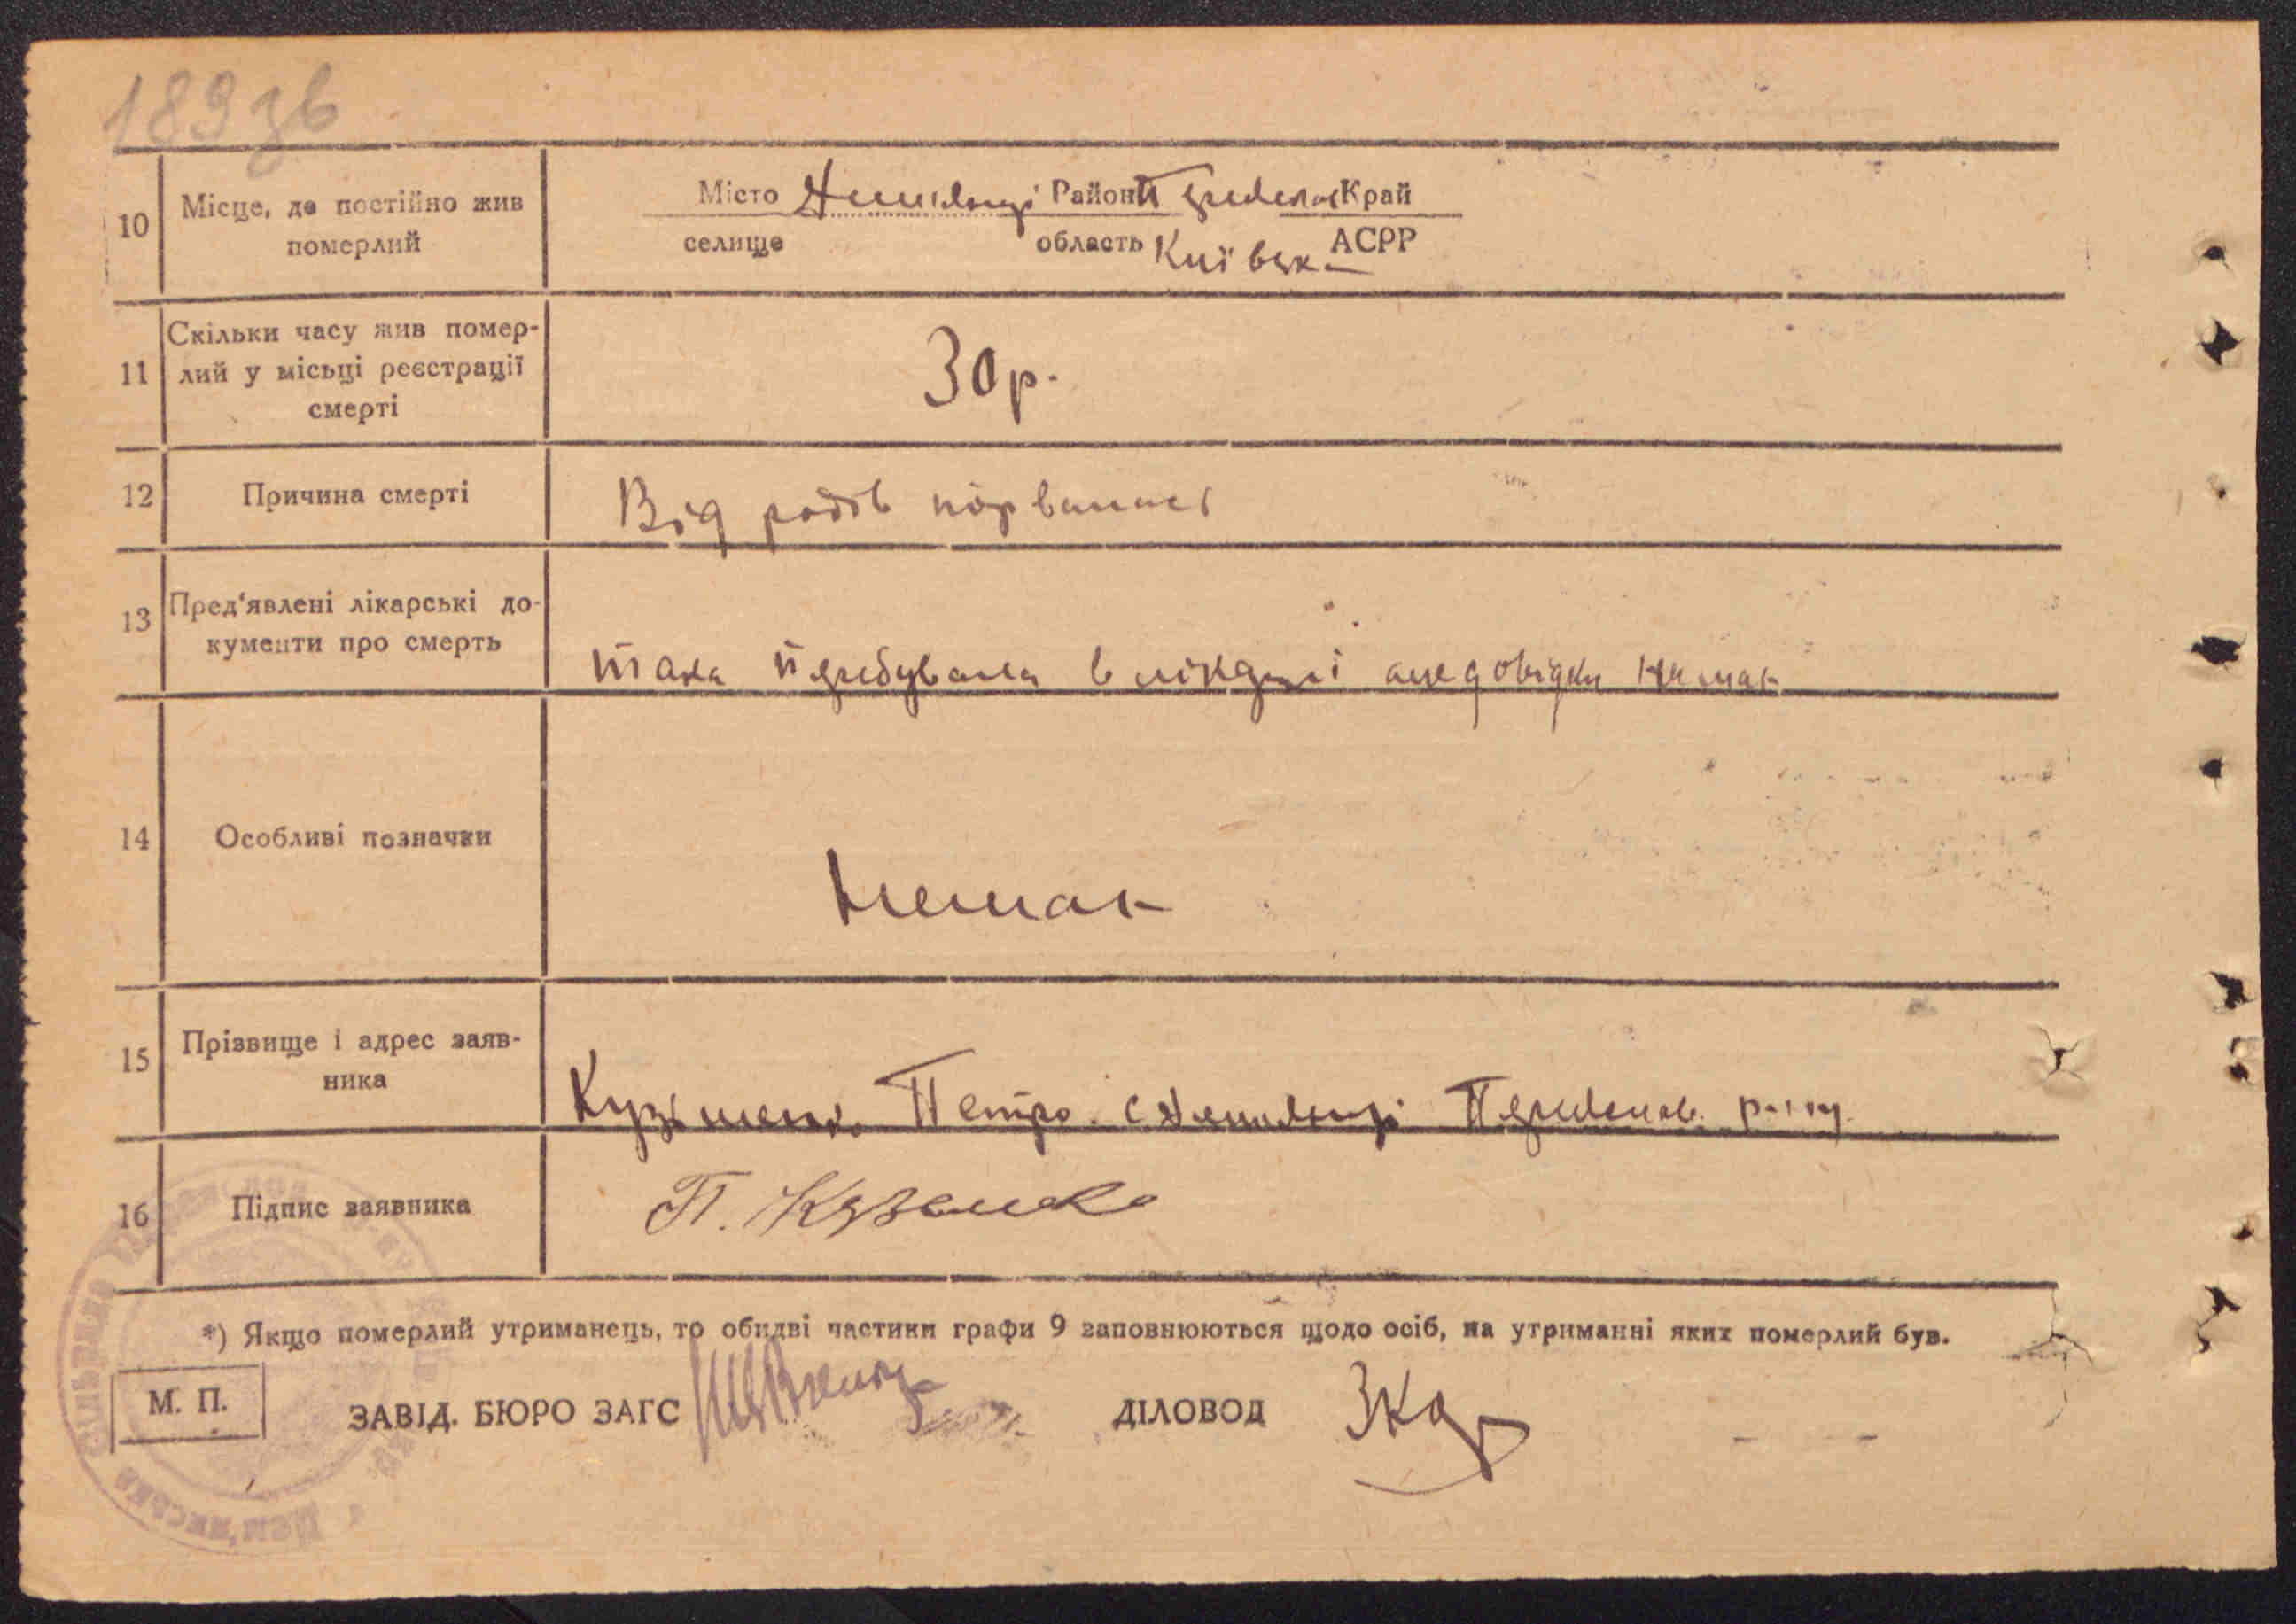 189 зв
10 Місце, де постійно жив померлий
Місто Демьянці Район Переяслав Край
селище область Київськ АСРР
11 Скільки часу жив помер-
лий у місьці реєстрації
смерті
30 р.
12 Причина смерті
Від родів порвалась
13 Пред'явлені лікарські до-
кументи про смерть
така перебувала в лікарні але довідки немає
14 Особливі позначки
Немає
15 Прізвище і адрес заяв-
ника
Кузьменко Петро с Демьянці Переяслав. р-ну
16 Підпис заявника
П. Кузьменко
*) Якщо померлий утриманець, то обидві частини графи 9 заповнюються щодо осіб, на утриманні яких померлий був.
М. П.
ЗАВІД. БЮРО ЗАГС
ДІЛОВОД